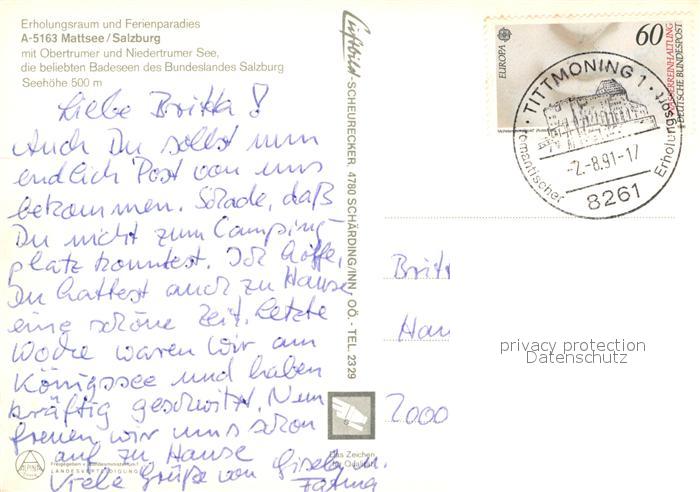 Erholungsraum und Ferienparadies
A-5163 Mattsee/Salzburg
mit Obertrumer und Niedertrumer See,
die beliebten Badeseen des Bundeslandes Salzburg
Seehöhe 500 m
Liebe Britta!
Auch Du sollst nun
endlich Post von uns
bekommen. Schade, daß
Du nicht zum Camping-
platz konntest. Ich hoffe,
Du hattest auch zu Hause
eine schöne Zeit. Letzte
Woche waren wir am
Königssee und haben
kräftig geschwitzt. Nun
freuen wir uns schon
auf zu Hause
Viele Grüße von Gisela u.
Fatma
ALPINA
Freigegeben v. Bundesministerium f.
LANDESVERTEIDIGUNG
Luftbild-SCHEURECKER, 4780 SCHÄRDING/INN, OÖ. - TEL. 2329
Das Zeichen
für Qualität
EUROPA
60
DEUTSCHE BUNDESPOST
TITTMONING 1
-2.-8.91-17
romantischer Erholungsort
8261
Britt
Han
2000
privacy protection
Datenschutz